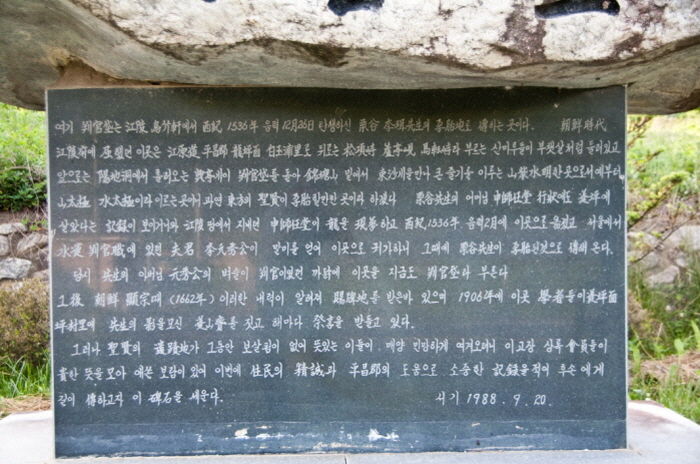 여기 判官垈는 江陵 烏竹軒에서 西紀 1536年 음력 12月26日 탄생하신 栗谷 李珥先生의 孕胎地로 傳하는 곳이다. 朝鮮時代
江陵府에 屈했던 이곳은 江原道 平昌郡 龍坪面 白玉浦里로 뒤로는 松項峙 馬転峙라 부르는 산마루들이 부챗살처럼 둘러있고
앞으로는 陽地洞에서 흘러오는 판관대를 돌아 밑에서 만나 큰 줄기를 이루는 山紫水明한 곳으로 예부터
山太極 水太極이라 이르는곳이 과연 東方의 聖賢이 孕胎될만한 곳이라 하겠다 栗谷先生의 어머님 申師任堂 行狀에도 蓬坪에
살았다는 記錄이 보이거니와 江陵땅에서 지내던 申師任堂이 龍을 現夢하고 西紀1536年 음력2月에 이곳으로 옮겼고 서울에서
水運判官職에 있던 夫君 李元秀公이 말미를 얻어 이곳으로 귀가하니 그때에 栗谷先生이 孕胎된것으로 傳해 온다.
당시 先生의 아버님 元秀公의 벼슬이 判官이였던 까닭에 이곳을 지금도 判官垈라 부른다
그後 朝鮮 顯宗때 (1662年) 이러한 내력이 알려져 賜牌地를 받은바 있으며 1906年에 이곳 學者들이 蓬坪面
坪村里에 先生의 影을모신 奉山齋를 짓고 해마다 祭享을 받들고 있다.
그러나 聖賢의 遺蹟地가 그동안 보살핌이 없어 뜻있는 이들이 매양 민망하게 여겨오더니 이고장 會員들이
귀한 뜻을모아 애쓴 보람이 있어 이번에 住民의 精誠과 平昌郡의 도움으로 소중한 記錄을적어 후손에게
길이 傳하고자 이 碑石을 세운다. 서기 1988. 9. 20.